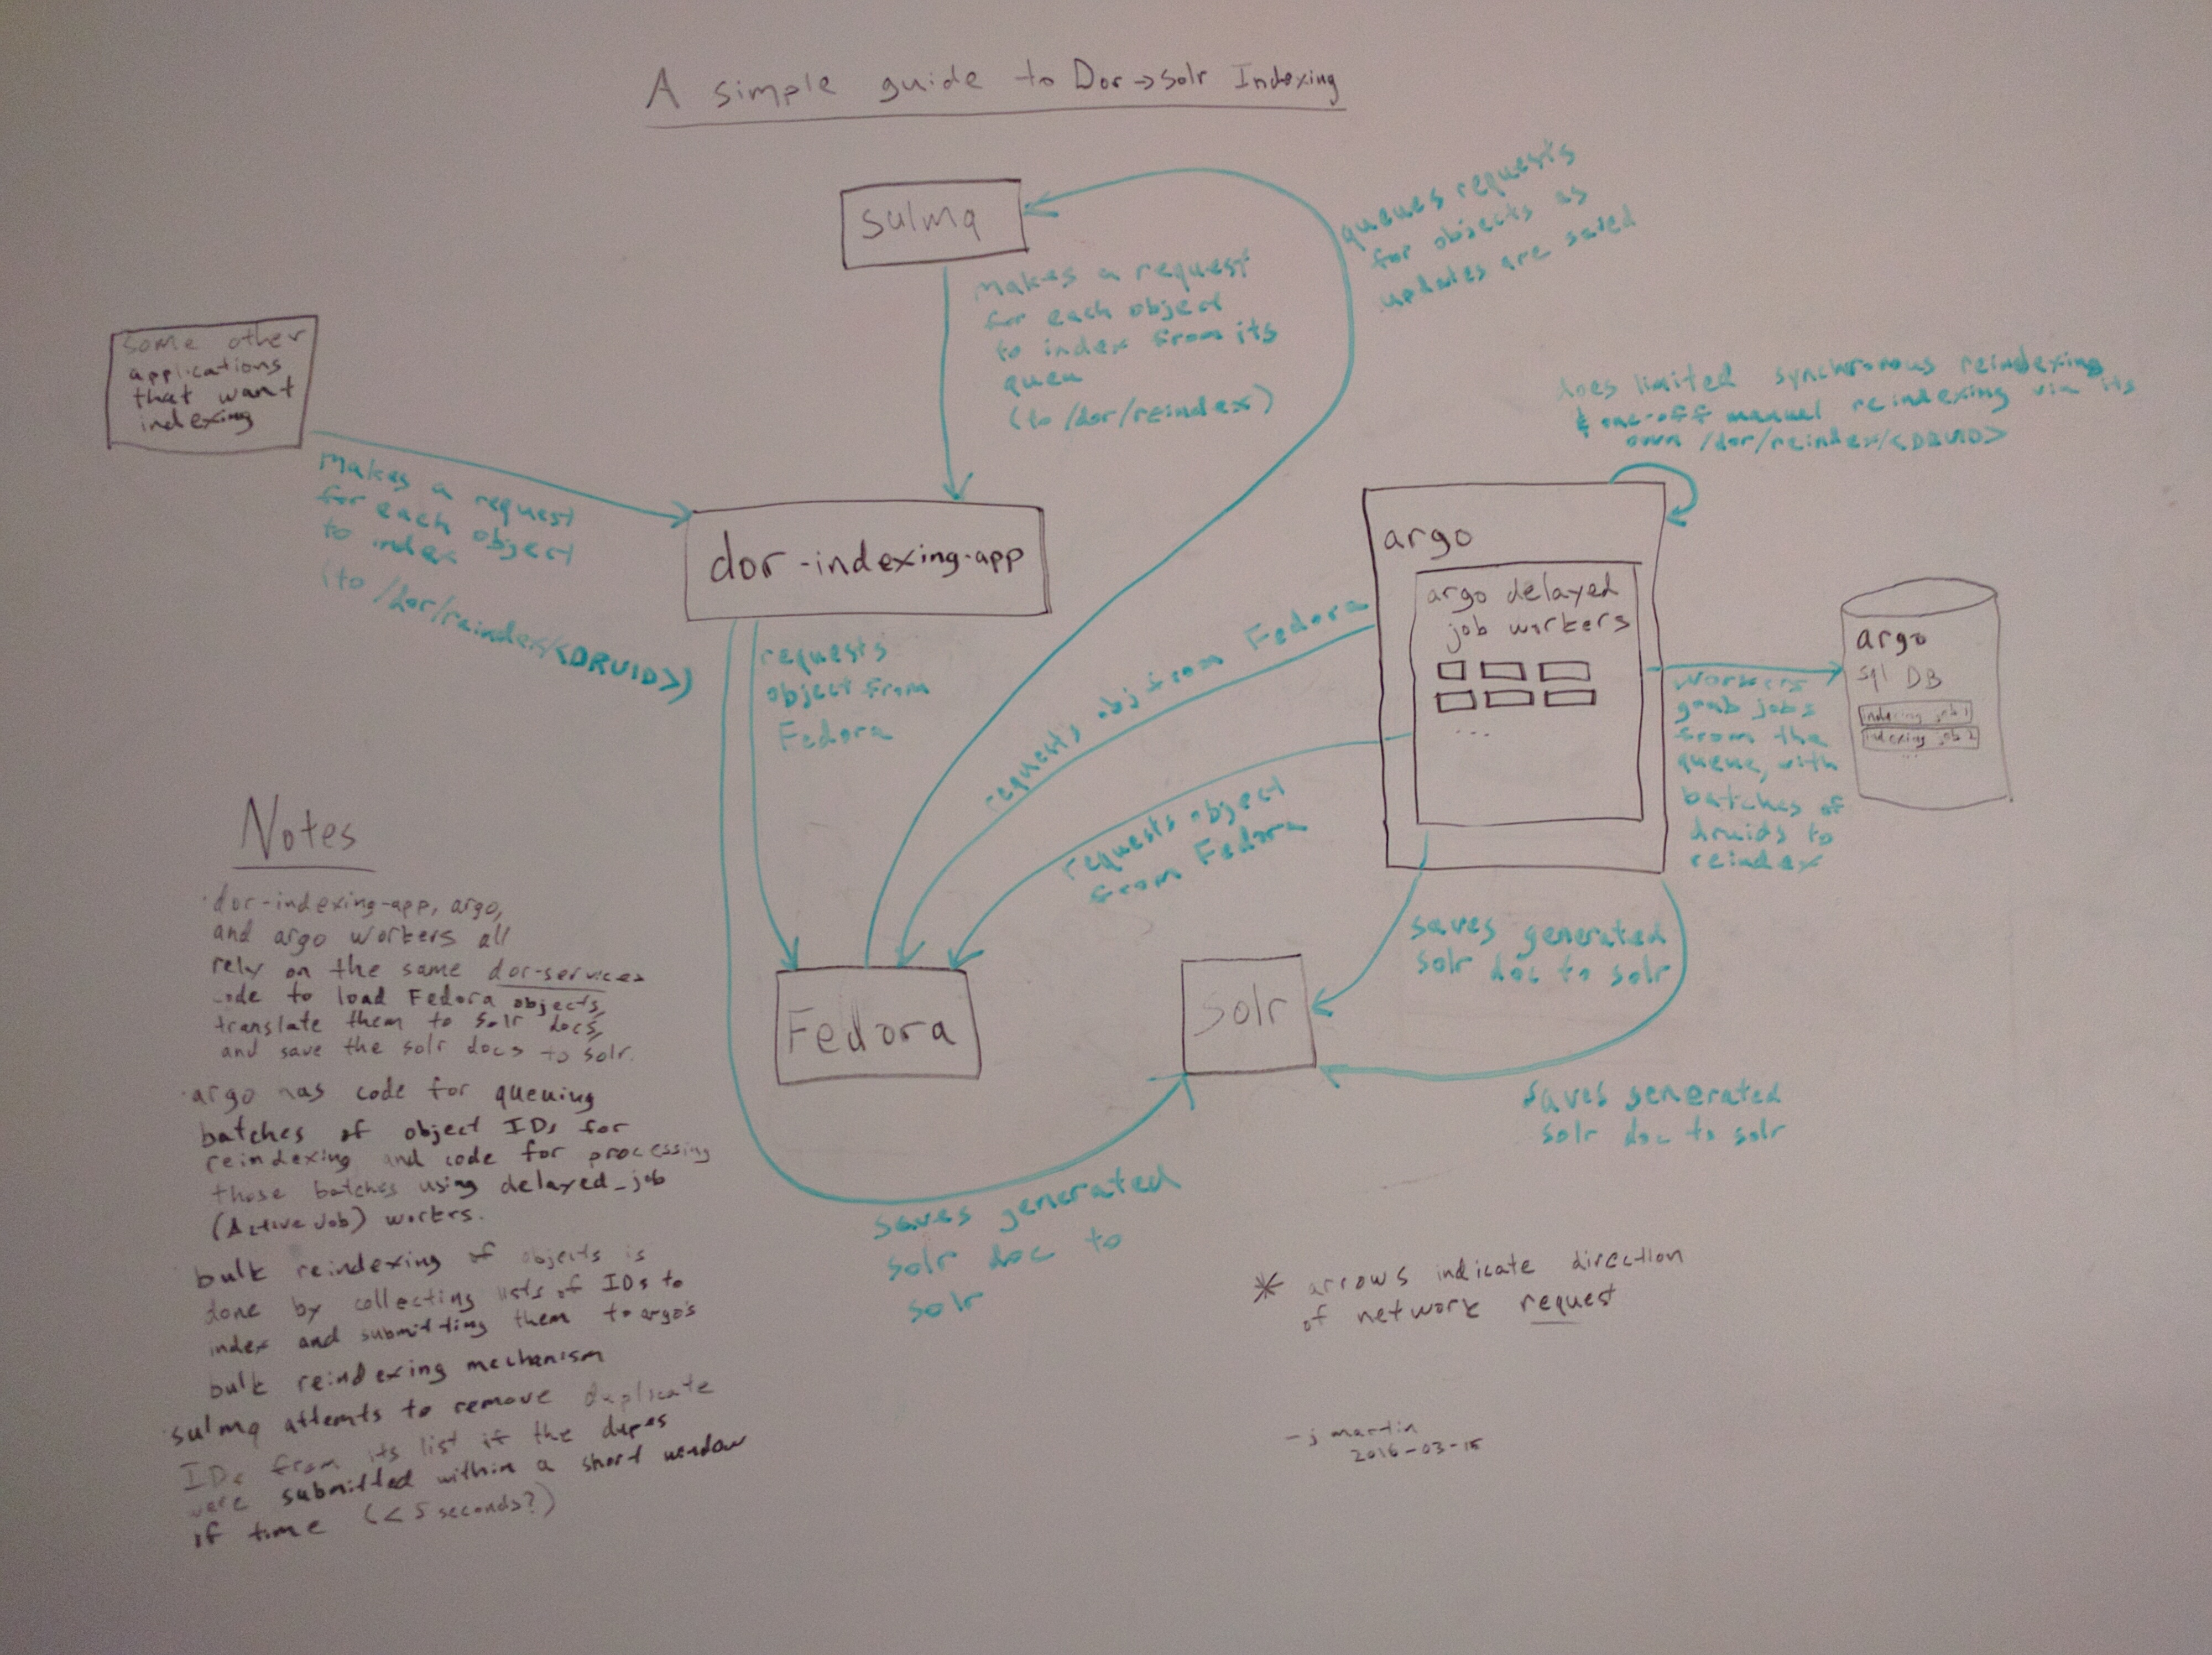 A simple guide to Dor→solr Indexing
sulmq
queues requests
for objects as
updates are saved
makes a request
for each object
to index from its
queu
(to /dor/reindex)
some other
applications
that want
indexing
makes a request
for each object
to index
(to /dor/reindex/<DRUID>)
does limited synchronous reindexing
& one-off manual reindexing via its
own /dor/reindex/<DRUID>
dor-indexing-app
argo
argo delayed
job workers
...
argo
sql DB
indexing job 1
indexing job 2
...
workers
grab jobs
from the
queue, with
batches of
druids to
reindex
requests
object from
Fedora
requests obj from Fedora
requests object
from Fedora
saves generated
solr doc to solr
Fedora
solr
saves generated
solr doc to solr
saves generated
solr doc to
solr
Notes
·dor-indexing-app, argo,
and argo workers all
rely on the same dor-services
code to load Fedora objects,
translate them to solr docs,
and save the solr docs to solr.
·argo has code for queuing
batches of object IDs for
reindexing and code for processing
those batches using delayed_job
(Active Job) workers.
bulk reindexing of objects is
done by collecting lists of IDs to
index and submitting them to argo's
bulk reindexing mechanism
·sulmq attemts to remove duplicate
IDs from its list if the dupes
were submitted within a short window
if time (< 5 seconds?)
* arrows indicate direction
of network request
- j martin
2016-03-15